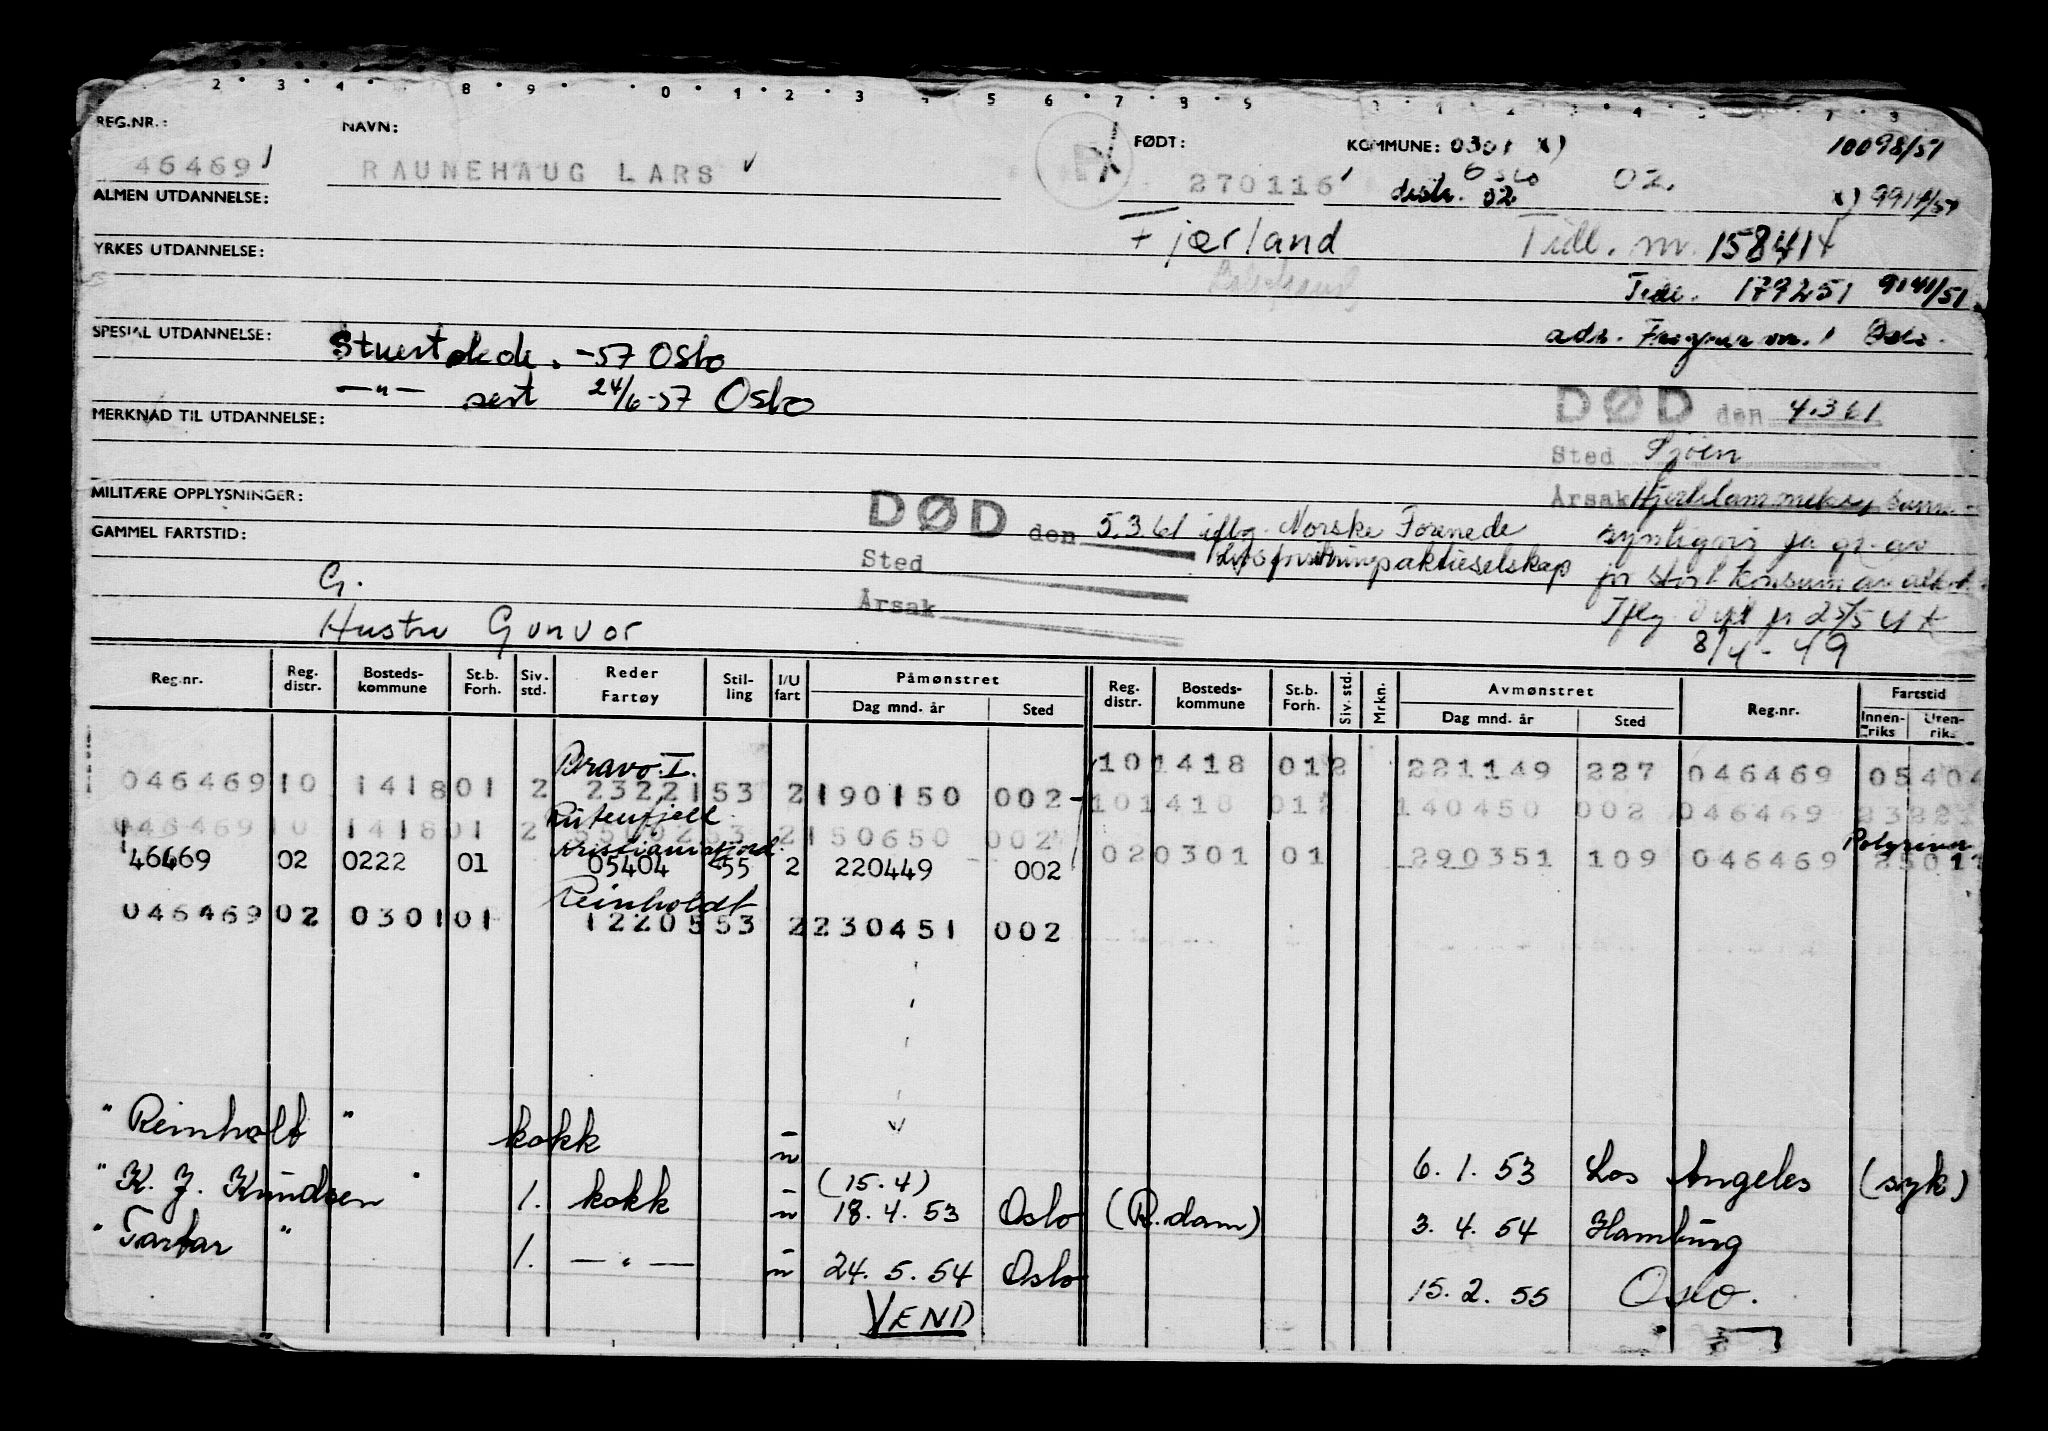 2 3 4 8 9 0 1 2 3 5 6 7 8 9
REG.NR.: NAVN: FØDT: KOMMUNE: 0301 x) 10098/51
46469 RAUNEHAUG LARS 270116 Oslo 02.
distr. 02 x)
ALMEN UTDANNELSE:
YRKES UTDANNELSE: Fjærland Tidl. nr. 158414
Tidl. 179251 9141/51
SPESIAL UTDANNELSE: Stuertskole. -57 Oslo adr. Oslo.
—"— sert 24/6-57 Oslo
MERKNAD TIL UTDANNELSE: DØD den 4.3 61
Sted Sjøen
MILITÆRE OPPLYSNINGER: Årsak
GAMMEL FARTSTID: DØD den 5.3.61 iflg. Norske Forenede
Livsforsikringsaktieselskap
Sted
Årsak
G.
Hustru Gunvor
8/4-49
Reg.nr. Reg. distr. Bosteds-kommune St.b. Forh. Siv. std. Reder Fartøy Stil-ling I/U fart Påmønstret Dag mnd. år Sted Reg. distr. Bosteds-kommune St.b. Forh. Siv. std. Mrkn. Avmønstret Dag mnd. år Sted Reg.nr. Fartstid Innen-riks Uten-riks
Bravo I.
046469 10 1418 01 2 23221 53 2 190150 002 10 1418 01 2 221149 227 046469 05404
Rutenfjell
046469 10 1418 01 2 53 2 150650 002 10 1418 01 2 140450 002 046469 23221
Kristianiafjord. Polyriver
46469 02 0222 01 05404 55 2 220449 002 02 0301 01 290351 109 046469
Reinholdt
046469 02 0301 01 12205 53 2 230451 002
" Reinholt " kokk u 6.1.53 Los Angeles (syk)
" K. J. Knudsen " 1. kokk u (15.4) 18.4.53 Oslo (R.dam) 3.4.54 Hamburg
" Tartar " 1. —"— u 24.5.54 Oslo 15.2.55 Oslo.
VEND